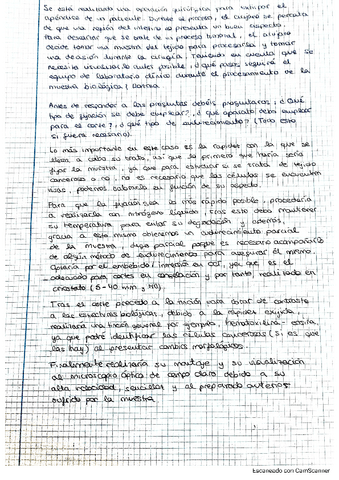 Se está realizando una operación quirúrgica para extirpar el
apéndice de un paciente. Durante el proceso, el cirujano se percata
de que una región del intestino no presenta un buen aspecto.
Para descartar que se trate de un proceso tumoral, el cirujano
decide tomar una muestra del tejido para procesarla y tomar
una decisión durante la cirugía. Teniendo en cuenta que se
necesita visualizar lo antes posible, ¿qué pasos seguirá el
equipo de laboratorio clínico durante el procesamiento de la
muestra biológica?
Antes de responder a las preguntas debéis preguntaros: ¿Qué
tipo de fijación se debe emplear?, ¿qué aparato debo emplear
para el corte?, ¿qué tipo de endurecimiento? (Para esto
si fuera necesario).
Lo más importante en este caso es la rapidez con la que se
lleve a cabo. Por tanto, así que lo primero que haría sería
fijar la muestra, ya que para estudiar si se trata de tejido
canceroso o no, no es necesario que las células se encuentren
vivas, podemos saberlo en función de su aspecto.
Para que la fijación sea lo más rápido posible, procedería
a realizarla con nitrógeno líquido, tras esto debo mantener
su temperatura para evitar su degradación y además,
gracias a este mismo obtenemos un endurecimiento parcial
de la muestra, digo parcial porque es necesario acompañarlo
de algún método de endurecimiento para asegurar el mismo.
Optaría por el embebido / inmersión en OCT, ya que es el
adecuado para cortes en congelación y por tanto, realizado en
criostato (5-40 mm,
Tras el corte procedo a la tinción para dotar de contraste
a las estructuras biológicas, debido a la rapidez exigida,
realizaría una tinción general por ejemplo, hematoxilina-eosina,
ya que podré identificar las células cancerosas (si es que
las hay) al presentar cambios morfológicos.
Finalmente realizaría su montaje y su visualización
al microscopio óptico de campo claro debido a su
alta velocidad, sencillez y al preparado anterior
sufrido por la muestra.
Escaneado con CamScanner